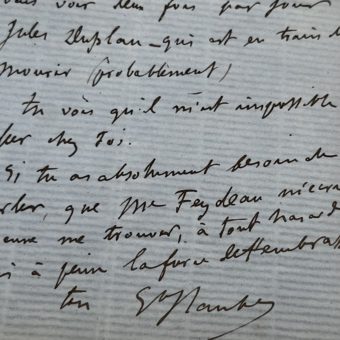 vais voir deux fois par jour
Jules Duplan - qui est en train de
mourir (probablement)
Tu vois qu'il m'est impossible
aller chez Toi.
Si tu as absolument besoin de
parler, que Me Feydeau m'écrive
me trouver, à tout hasard
ai à peine la force de t'embrasser
ton Gve Flaubert